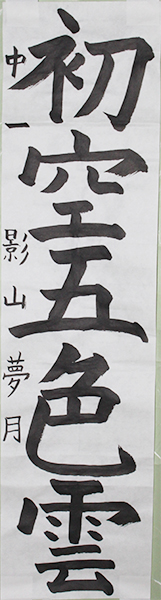 初空五色雲
中一 影山夢月